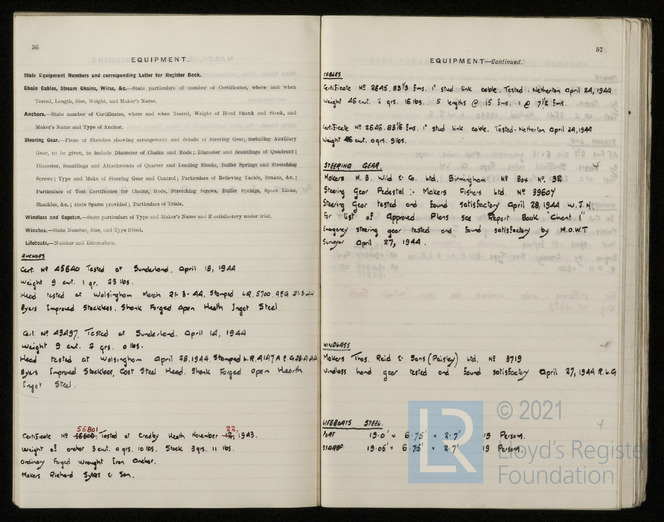 56
EQUIPMENT.
State Equipment Numbers and corresponding Letter for Register Book.
Chain Cables, Stream Chains, Wires, &c.—State particulars of number of Certificates, where and when
Tested, Length, Size, Weight, and Maker's Name.
Anchors.—State number of Certificates, where and when Tested, Weight of Head Shank and Stock, and
Maker's Name and Type of Anchor.
Steering Gear.—Plans or Sketches showing arrangement and details of Steering Gear, including Auxiliary
Gear, to be given, to include Diameter of Chains and Rods; Diameter and Scantlings of Quadrant;
Diameter, Scantlings and Attachments of Quarter and Leading Blocks, Buffer Springs and Stretching
Screws; Type and Make of Steering Gear and Control; Particulars of Relieving Tackle, Brakes, &c.;
Particulars of Test Certificates for Chains, Rods, Stretching Screws, Buffer Springs, Spare Links,
Shackles, &c.; state Spares provided; Particulars of Trials.
Windlass and Capstan.—State particulars of Type and Maker's Name and if satisfactory under trial.
Winches.—State Number, Size, and Type fitted.
Lifeboats.—Number and Dimensions.
ANCHORS
Cert. Nº 45640 Tested at Sunderland. April 18, 1944
Weight 9 cwt. 1 qr. 23 lbs.
Head tested at Walsingham March 21.3.44. Stamped LR. 5700 21.3.44
Byers Improved Stockless. Shank Forged Open Hearth Ingot Steel
Cert. Nº 43497. Tested at Sunderland. April 14, 1944
Weight 9 cwt. 2 qrs. 0 lbs.
Head tested at Walsingham April 28, 1944 Stamped L.R.
Byers Improved Stockless, Cast Steel Head. Shank Forged Open Hearth
Ingot Steel.
55801 22,
Certificate Nº Tested at Cradley Heath November 1943.
Weight of anchor 3 cwt. 0 qrs. 10 lbs. Stock 3 qrs. 11 lbs.
Ordinary Forged Wrought Iron Anchor.
Makers Richard Sykes & Son.
57
EQUIPMENT—Continued.
CABLES
Certificate Nº 2645. 83⅓ fms. 1" stud link cable. Tested. Netherton April 24, 1944
Weight 46 cwt. 2 qrs. 16 lbs. 5 lengths @ 15 fms. 1 @ 7½ fms.
Certificate Nº 2646. 83⅓ fms. 1" stud link cable. Tested. Netherton April 24, 1944
Weight cwt. 0 qrs. 9 lbs.
STEERING GEAR.
Makers M.B. Wild & Co. Ltd. Birmingham Nº Box Nº. 92
Steering Gear Pedestal:- Makers Fishers Ltd. Nº 39607
Steering Gear tested and found satisfactory April 28, 1944 W.J.H.
For list of approved Plans see Report Book "Chant 1"
Emergency steering gear tested and found satisfactory by M.O.W.T
Surveyor April 27, 1944.
WINDLASS
Makers Thos. Reid & Sons (Paisley) Ltd. Nº 3719
Windlass hand gear tested and found satisfactory April 27, 1944 R.L.G
LIFEBOATS STEEL.
PORT 19.0' × 6.75' × 2.7' 19 Persons.
STARB'D 19.05' × 6.75' × 2.7' 19 Persons.
© 2021
LR
Lloyd's Register
Foundation